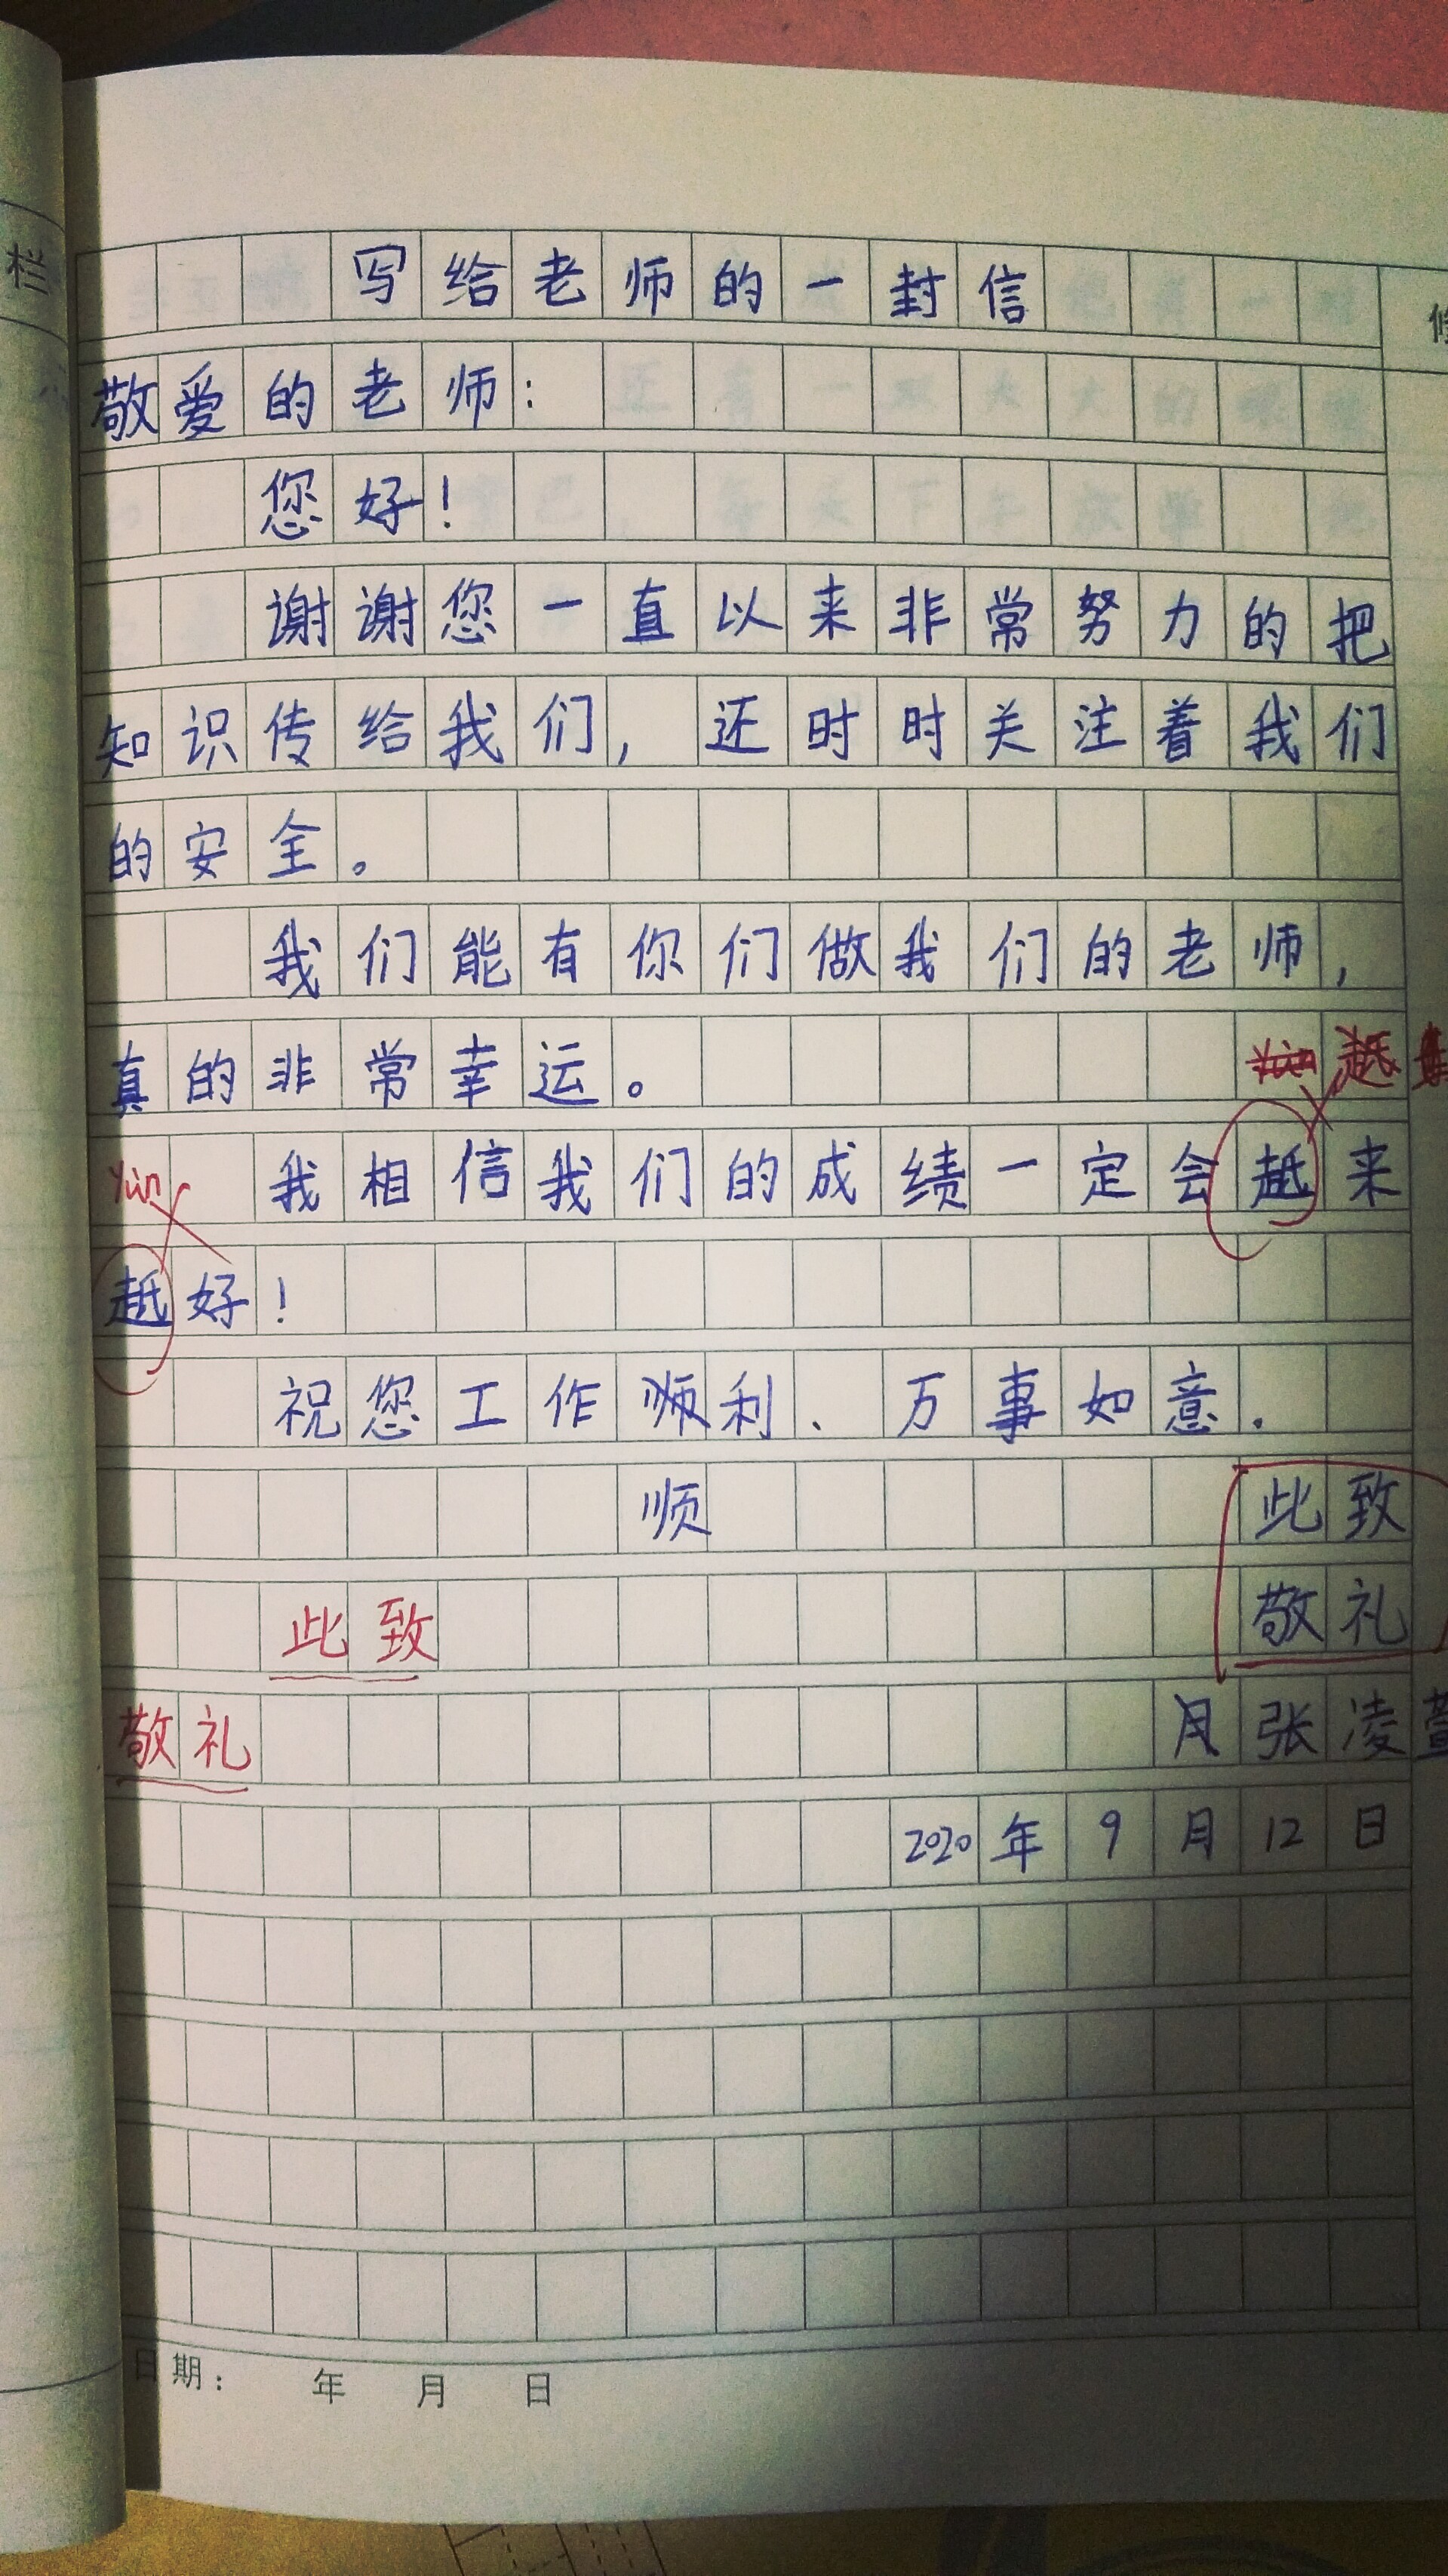 栏
写给老师的一封信
敬爱的老师：
您好！
谢谢您一直以来非常努力的把
知识传给我们，还时时关注着我们
的安全。
我们能有你们做我们的老师，
真的非常幸运。
越
我相信我们的成绩一定会越来
越好！
祝您工作顺利、万事如意.
顺 此致
此致 敬礼
敬礼 张凌萱
2020年9月12日
日期： 年 月 日